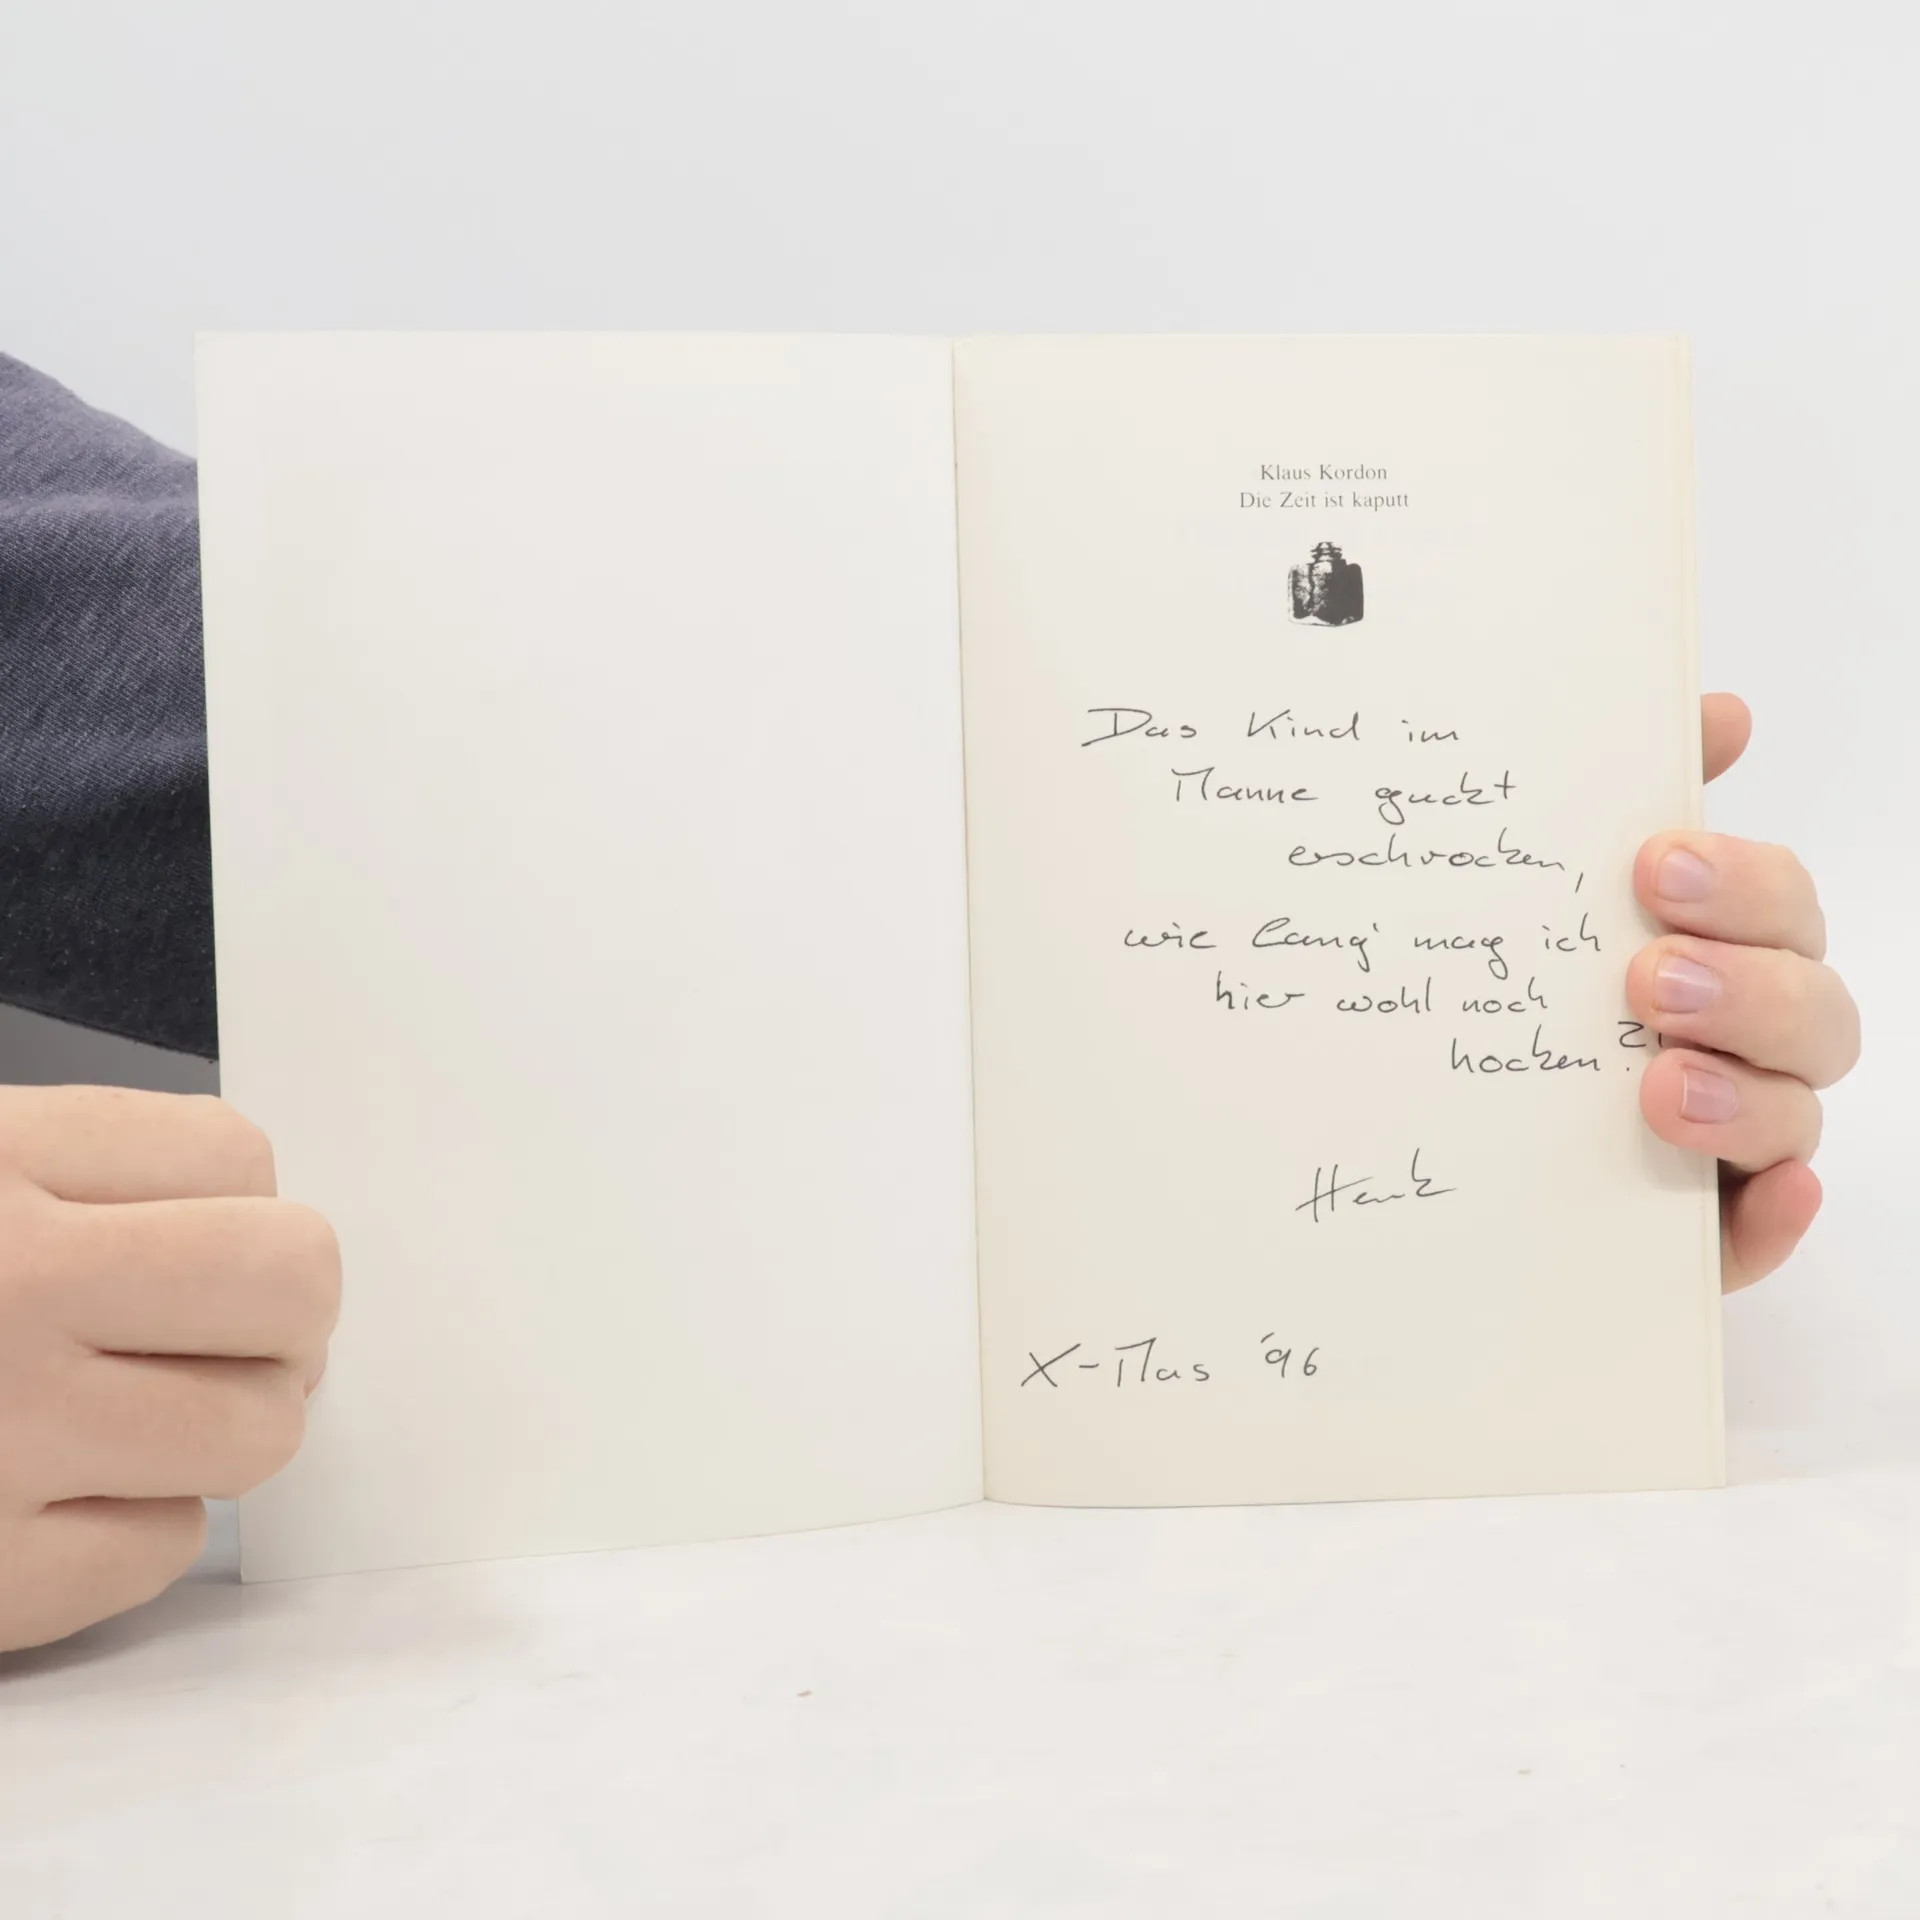 Klaus Kordon
Die Zeit ist kaputt
Das Kind im
Manne guckt
erschrocken,
wie lang' mag ich
hier wohl noch
hocken?!
Henk
X-Mas '96